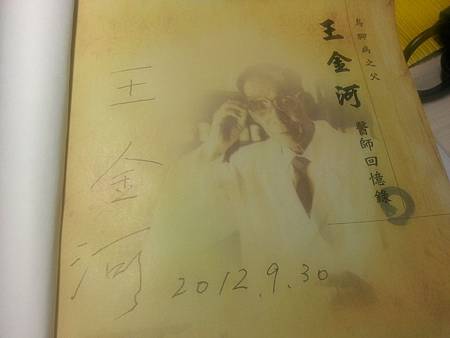 烏腳病之父
王金河
醫師回憶錄
王金河
2012.9.30